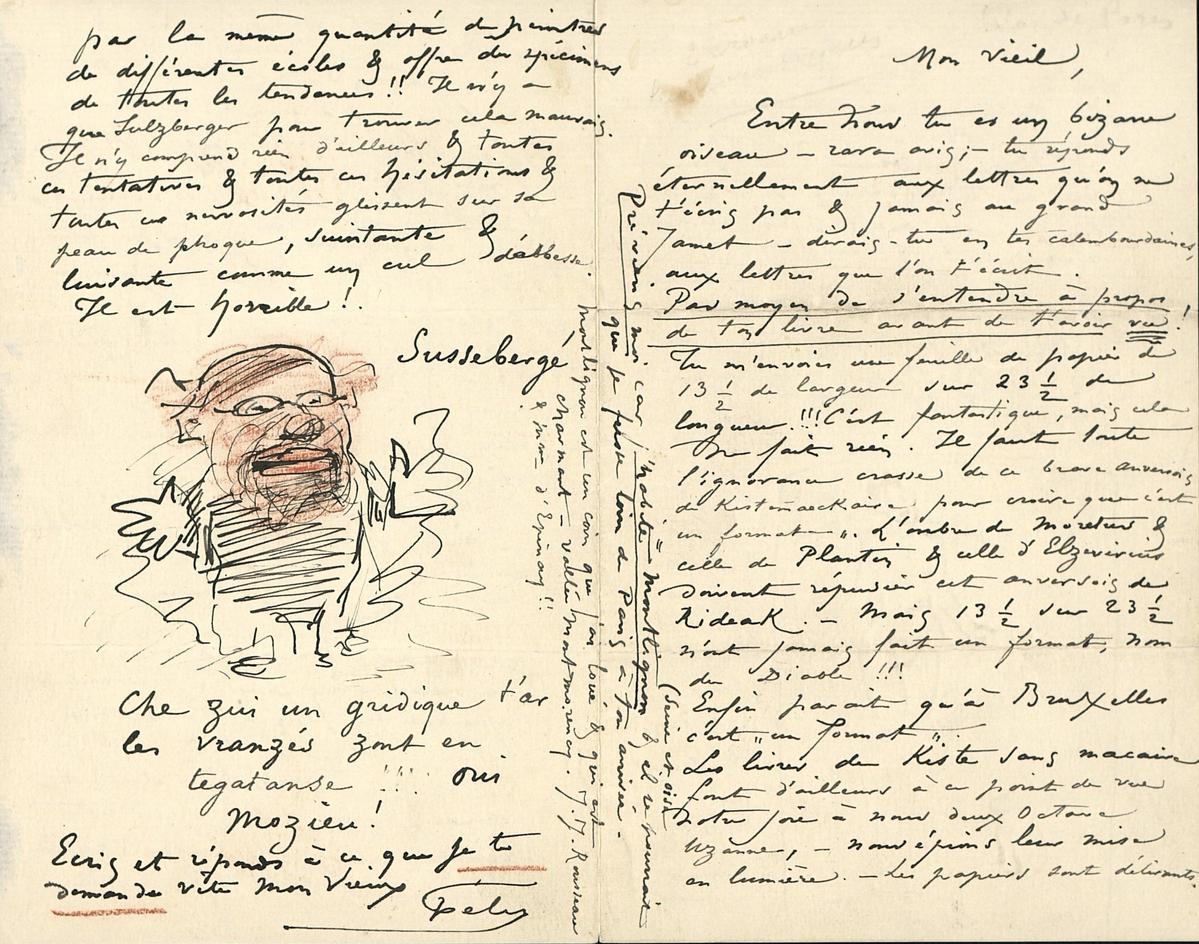 Mon Vieil,
Entre nous tu es un bizarre
oiseau – rara avis; – tu réponds
éternellement aux lettres qu'on ne
t'écris pas & jamais au grand
Jamet – dirais-tu en tes calembourdaines,
aux lettres que l'on t'écrit.
Pas moyen de s'entendre à propos
de ton livre avant de t'avoir vu!
Tu m'envois une feuille de papier de
13 ½ de largeur sur 23 ½ de
longueur.!!! C'est fantastique, mais cela
ne fait rien. Il faut toute
l'ignorance crasse de ce brave anversois
de Kistemaeckaire pour croire que c'est
un format ". L'ombre de Moretus &
celle de Plantin & celle d'Elzevirius
doivent répudier cet anversois de
Rideak. – Mais 13 ½ sur 23 ½
n'ont jamais fait un format, nom
du Diable !!!
Enfin parait qu'à Bruxelles
c'est " un format ".
Les livres de Kiste sans macaire
font d'ailleurs à ce point de vue
notre joie à nous deux Octave
Uzanne, – nous épions leur mise
en lumière. – Les papiers sont délirants,
par la même quantité de peintres
de différentes écoles & offre des spécimens
de toutes les tendances!! Il n'y a
que Sulzberger pour trouver cela mauvais.
Il n'y comprend rien d'ailleurs & toutes
ces tentatives & toutes ces hésitations &
toutes ces nervosités glissent sur sa
peau de phoque, suintante &
luisante comme un cul d'abbesse.
Il est horrible!
Sussebergé
Che zui un gridique t'ar
les vranzés zont en
tegatanse !!! oui
Mozieu!
Ecris et réponds à ce que je te
demande vite mon Vieux
Fély
Préviens moi car j'habite Montlignon (Seine et oise
& il se pourrait
que je fusse loin de Paris à ton arrivée.
Montlignon est un coin que j'ai loué & qui est
charmant – vallée Montmorency. J. J. Rousseau
& Mme d'Epinay!!